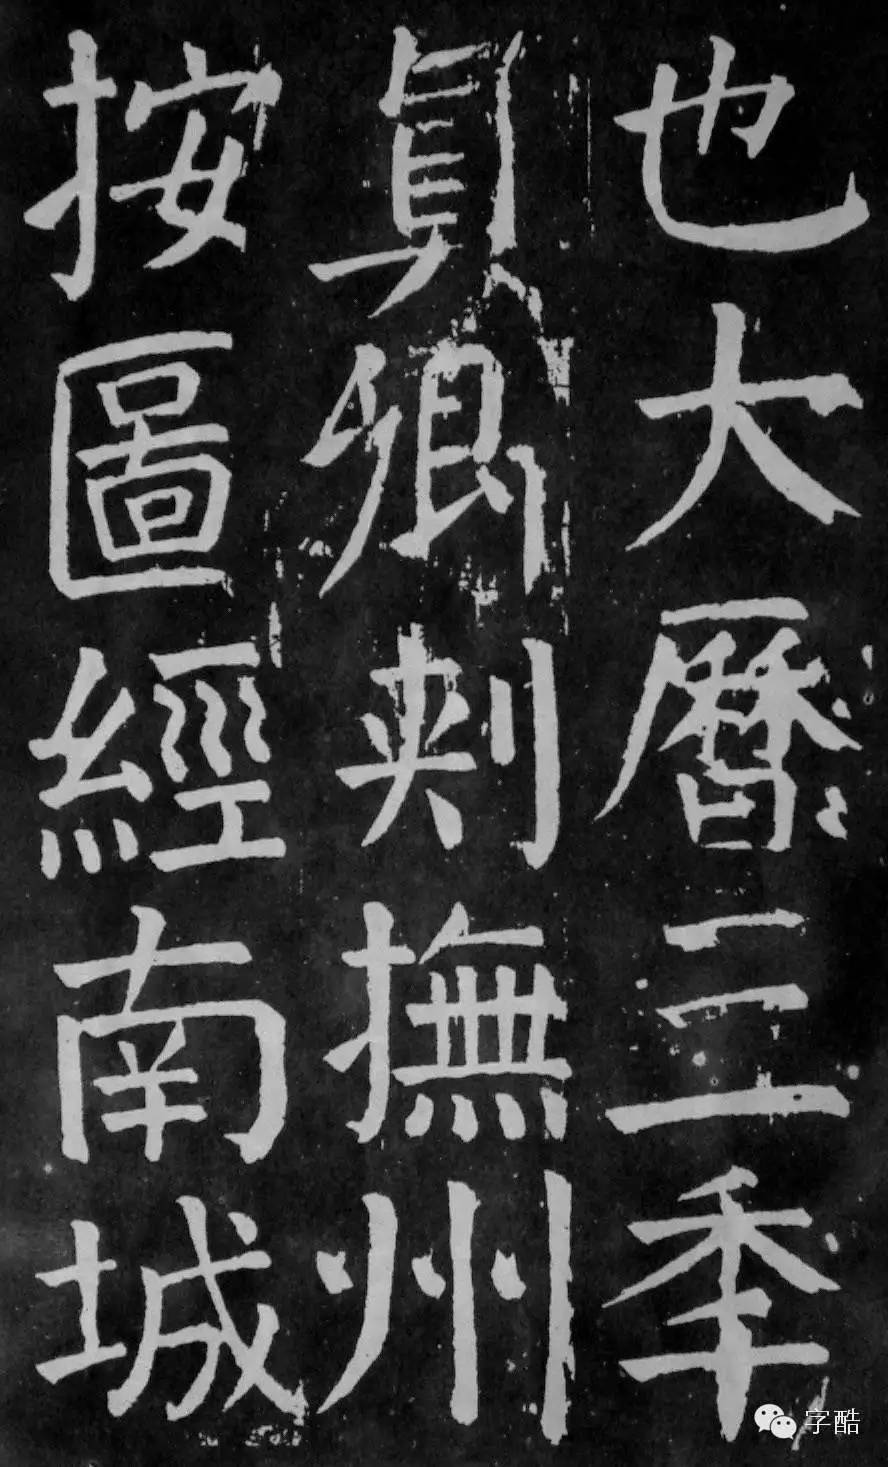 也大曆三年
真卿刺撫州
按圖經南城
字酷